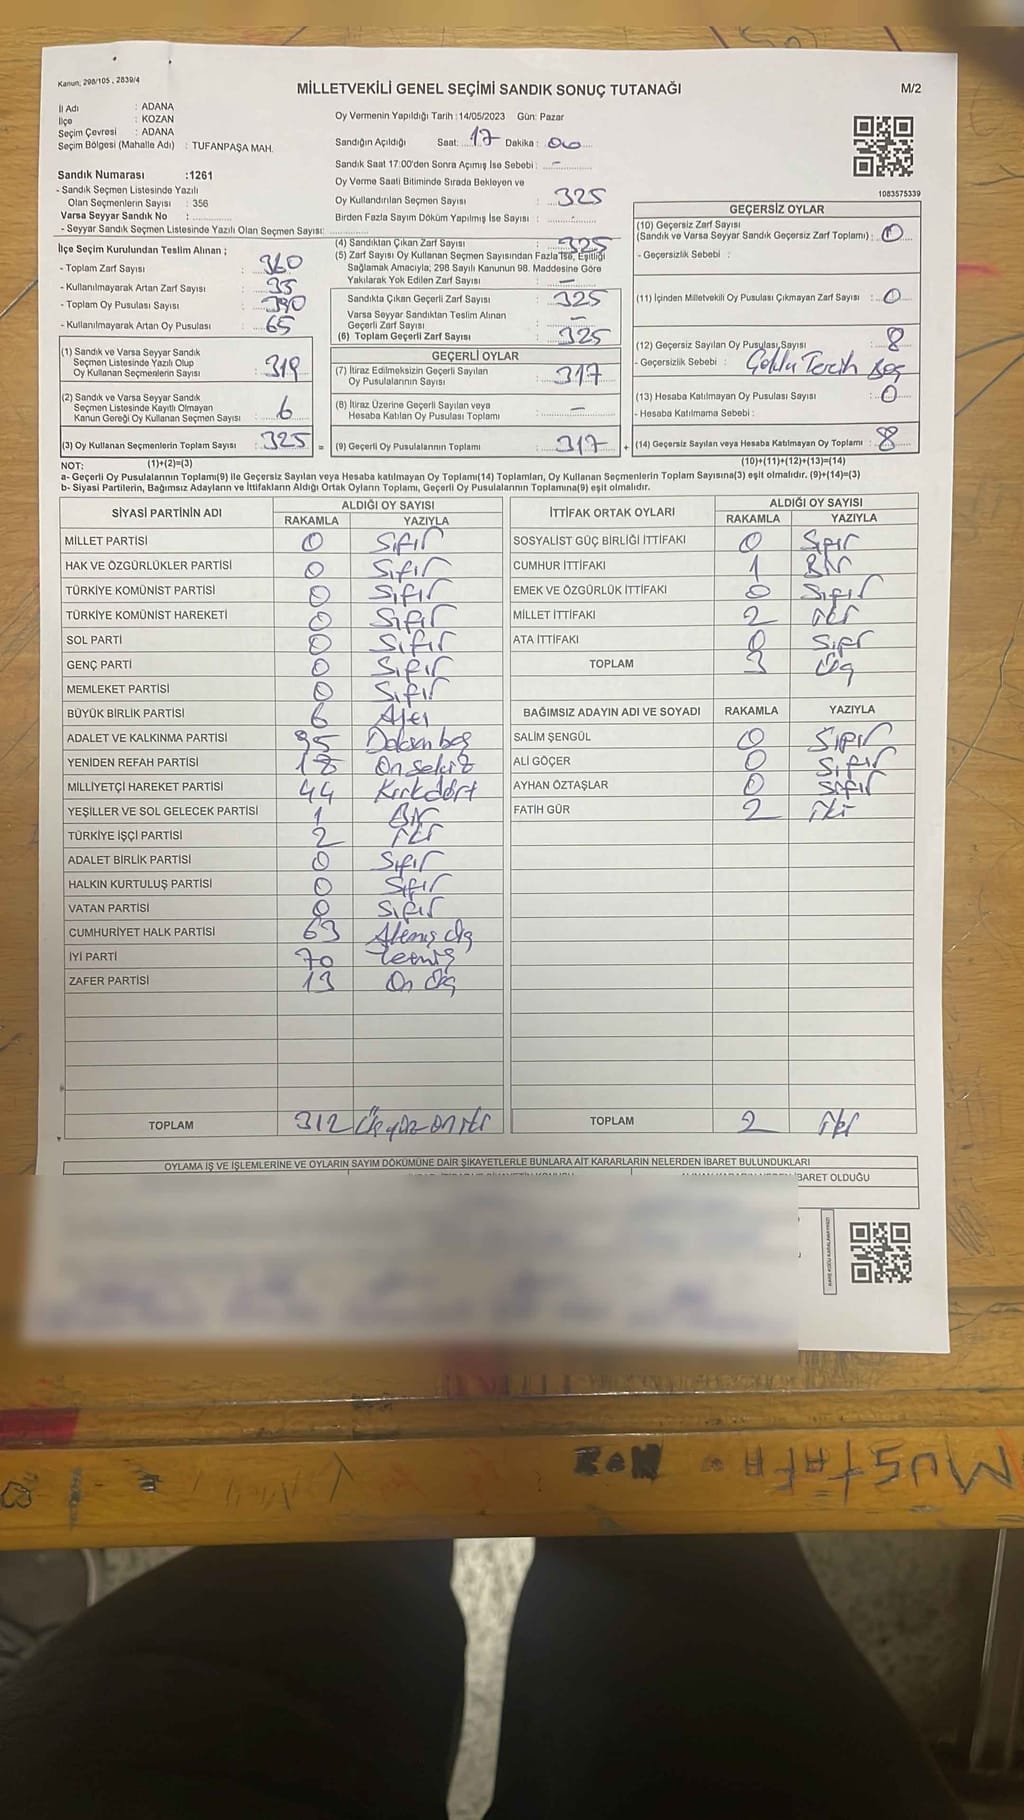 Kanun; 298/105 ; 2839/4
MİLLETVEKİLİ GENEL SEÇİMİ SANDIK SONUÇ TUTANAĞI
M/2
İl Adı : ADANA
İlçe : KOZAN
Seçim Çevresi : ADANA
Seçim Bölgesi (Mahalle Adı) : TUFANPAŞA MAH.
Sandık Numarası :1261
- Sandık Seçmen Listesinde Yazılı
Olan Seçmenlerin Sayısı : 356
Varsa Seyyar Sandık No :
- Seyyar Sandık Seçmen Listesinde Yazılı Olan Seçmen Sayısı:
Oy Vermenin Yapıldığı Tarih :14/05/2023 Gün: Pazar
Sandığın Açıldığı Saat: 17 Dakika: 00
Sandık Saat 17.00'den Sonra Açımış İse Sebebi : -
Oy Verme Saati Bitiminde Sırada Bekleyen ve
Oy Kullandırılan Seçmen Sayısı : 325
Birden Fazla Sayım Döküm Yapılmış İse Sayısı :
1083575339
İlçe Seçim Kurulundan Teslim Alınan ;
- Toplam Zarf Sayısı : 360
- Kullanılmayarak Artan Zarf Sayısı : 35
- Toplam Oy Pusulası Sayısı : 390
- Kullanılmayarak Artan Oy Pusulası : 65
(1) Sandık ve Varsa Seyyar Sandık
Seçmen Listesinde Yazılı Olup
Oy Kullanan Seçmenlerin Sayısı : 319
(2) Sandık ve Varsa Seyyar Sandık
Seçmen Listesinde Kayıtlı Olmayan
Kanun Gereği Oy Kullanan Seçmen Sayısı : 6
(3) Oy Kullanan Seçmenlerin Toplam Sayısı : 325 =
(4) Sandıktan Çıkan Zarf Sayısı : 325
(5) Zarf Sayısı Oy Kullanan Seçmen Sayısından Fazla İse, Eşitliği
Sağlamak Amacıyla; 298 Sayılı Kanunun 98. Maddesine Göre
Yakılarak Yok Edilen Zarf Sayısı : -
Sandıkta Çıkan Geçerli Zarf Sayısı : 325
Varsa Seyyar Sandıktan Teslim Alınan
Geçerli Zarf Sayısı : -
(6) Toplam Geçerli Zarf Sayısı : 325
GEÇERLİ OYLAR
(7) İtiraz Edilmeksizin Geçerli Sayılan
Oy Pusulalarının Sayısı : 317
(8) İtiraz Üzerine Geçerli Sayılan veya
Hesaba Katılan Oy Pusulası Toplamı : -
(9) Geçerli Oy Pusulalarının Toplamı : 317 +
GEÇERSİZ OYLAR
(10) Geçersiz Zarf Sayısı
(Sandık ve Varsa Seyyar Sandık Geçersiz Zarf Toplamı) : 0
- Geçersizlik Sebebi :
(11) İçinden Milletvekili Oy Pusulası Çıkmayan Zarf Sayısı : 0
(12) Geçersiz Sayılan Oy Pusulası Sayısı : 8
- Geçersizlik Sebebi : Çoklu Tercih Boş
(13) Hesaba Katılmayan Oy Pusulası Sayısı : 0
- Hesaba Katılmama Sebebi :
(14) Geçersiz Sayılan veya Hesaba Katılmayan Oy Toplamı : 8
NOT: (1)+(2)=(3) (10)+(11)+(12)+(13)=(14)
a- Geçerli Oy Pusulalarının Toplamı(9) ile Geçersiz Sayılan veya Hesaba katılmayan Oy Toplamı(14) Toplamları, Oy Kullanan Seçmenlerin Toplam Sayısına(3) eşit olmalıdır. (9)+(14)=(3)
b- Siyasi Partilerin, Bağımsız Adayların ve İttifakların Aldığı Oyların Toplamı, Geçerli Oy Pusulalarının Toplamına(9) eşit olmalıdır.
SİYASİ PARTİNİN ADI ALDIĞI OY SAYISI
RAKAMLA YAZIYLA
MİLLET PARTİSİ 0 Sıfır
HAK VE ÖZGÜRLÜKLER PARTİSİ 0 Sıfır
TÜRKİYE KOMÜNİST PARTİSİ 0 Sıfır
TÜRKİYE KOMÜNİST HAREKETİ 0 Sıfır
SOL PARTİ 0 Sıfır
GENÇ PARTİ 0 Sıfır
MEMLEKET PARTİSİ 0 Sıfır
BÜYÜK BİRLİK PARTİSİ 6 Altı
ADALET VE KALKINMA PARTİSİ 95 Doksan beş
YENİDEN REFAH PARTİSİ 18 On sekiz
MİLLİYETÇİ HAREKET PARTİSİ 44 Kırkdört
YEŞİLLER VE SOL GELECEK PARTİSİ 1 Bir
TÜRKİYE İŞÇİ PARTİSİ 2 iki
ADALET BİRLİK PARTİSİ 0 Sıfır
HALKIN KURTULUŞ PARTİSİ 0 Sıfır
VATAN PARTİSİ 0 Sıfır
CUMHURİYET HALK PARTİSİ 63 Altmış üç
İYİ PARTİ 70 Yetmiş
ZAFER PARTİSİ 13 On üç
TOPLAM 312 Üçyüz on iki
İTTİFAK ORTAK OYLARI ALDIĞI OY SAYISI
RAKAMLA YAZIYLA
SOSYALİST GÜÇ BİRLİĞİ İTTİFAKI 0 Sıfır
CUMHUR İTTİFAKI 1 Bir
EMEK VE ÖZGÜRLÜK İTTİFAKI 0 Sıfır
MİLLET İTTİFAKI 2 iki
ATA İTTİFAKI 0 Sıfır
TOPLAM 3 Üç
BAĞIMSIZ ADAYIN ADI VE SOYADI RAKAMLA YAZIYLA
SALİM ŞENGÜL 0 Sıfır
ALİ GÖÇER 0 Sıfır
AYHAN ÖZTAŞLAR 0 Sıfır
FATİH GÜR 2 iki
TOPLAM 2 iki
OYLAMA İŞ VE İŞLEMLERİNE VE OYLARIN SAYIM DÖKÜMÜNE DAİR ŞİKAYETLERLE BUNLARA AİT KARARLARIN NELERDEN İBARET BULUNDUKLARI
İBARET OLDUĞU
MUSTAFA